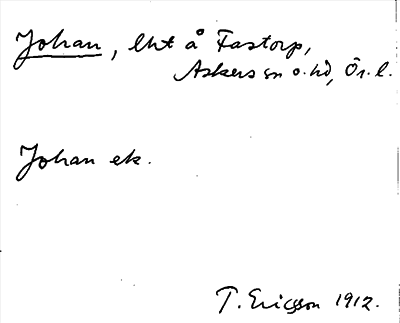 Johan, lht å Fastorp,
Askers sn o. hd, Ör. l.
Johan ek.
T. Ericsson 1912.